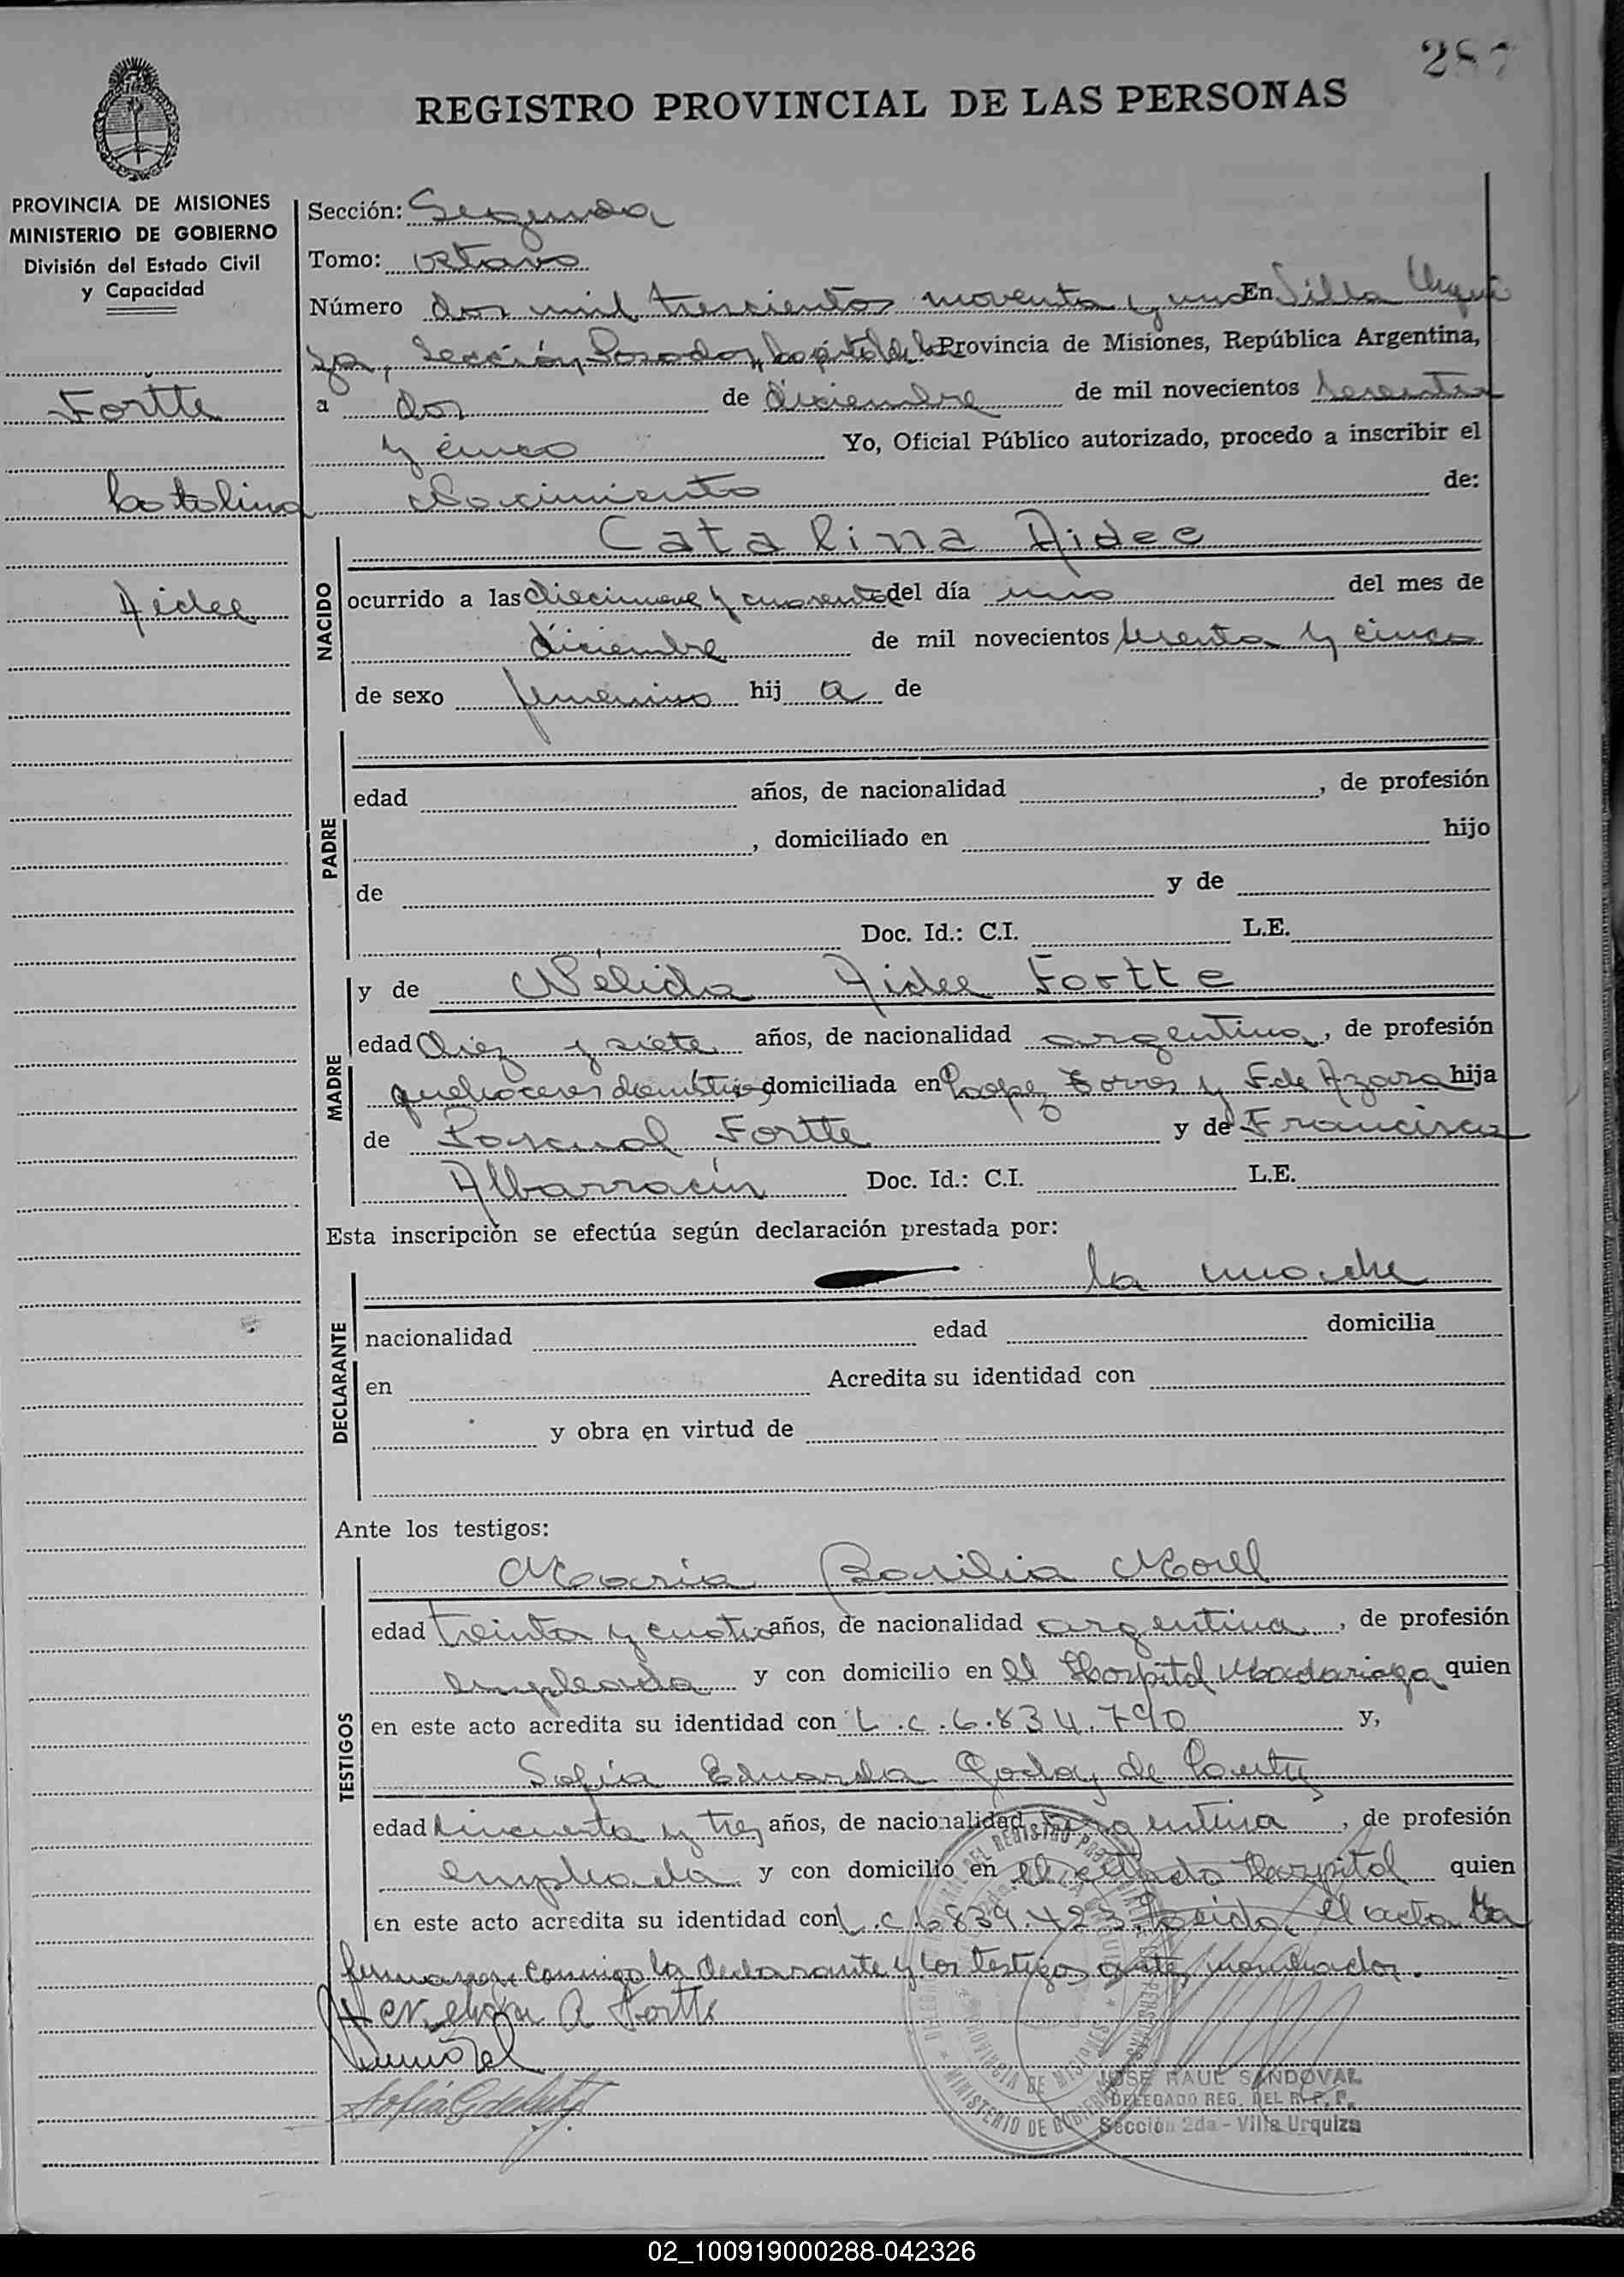 287
REGISTRO PROVINCIAL DE LAS PERSONAS
PROVINCIA DE MISIONES
MINISTERIO DE GOBIERNO
División del Estado Civil
y Capacidad
Fortte
Catalina
Aidee
Sección: Segunda
Tomo: octavo
Número dos mil trescientos noventa y uno En Villa Urqui
za, Sección Posadas, Capital de la Provincia de Misiones, República Argentina,
a dos de diciembre de mil novecientos sesenta
y cinco Yo, Oficial Público autorizado, procedo a inscribir el
Nacimiento de:
NACIDO
Catalina Aidee
ocurrido a las diecinueve y cuarenta del día uno del mes de
diciembre de mil novecientos sesenta y cinco
de sexo femenino hij a de
PADRE
edad años, de nacionalidad , de profesión
, domiciliado en hijo
de y de
Doc. Id.: C.I. L.E.
MADRE
y de Nélida Aidee Fortte
edad Diez y siete años, de nacionalidad argentina, de profesión
quehaceres domésticos domiciliada en Lopez Torres y F. de Azara hija
de Pascual Fortte y de Francisca
Albarracín Doc. Id.: C.I. L.E.
Esta inscripción se efectúa según declaración prestada por:
DECLARANTE
la madre
nacionalidad edad domicilia
en Acredita su identidad con
y obra en virtud de
Ante los testigos:
TESTIGOS
María Basilia Morel
edad treinta y cuatro años, de nacionalidad argentina, de profesión
empleada y con domicilio en el Hospital Madariaga quien
en este acto acredita su identidad con L.C.6.834.790 y,
Sofía Eduarda Godoy de
edad cincuenta y tres años, de nacionalidad argentina, de profesión
empleada y con domicilio en el citado Hospital quien
en este acto acredita su identidad con L.C.6839.423. Leida el acta la
firman conmigo la declarante y los testigos ante mencionados.
A Fortte
JOSE RAUL SANDOVAL
DELEGADO REG. DEL R. P. P.
Sección 2da - Villa Urquiza
PROVINCIA DE MISIONES
MINISTERIO DE GOBIERNO
02_100919000288-042326